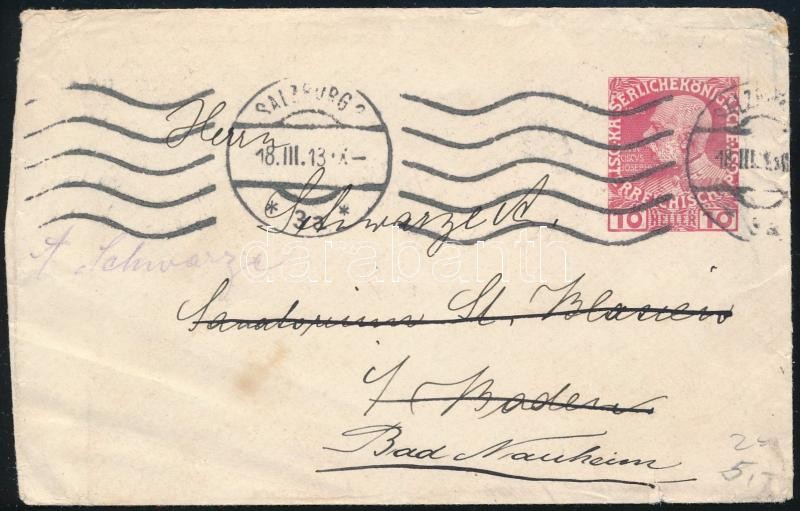 SALZBURG 2
18.III.13·X–
* 3a *
KAISERLICHE KÖNIGLICHE
ÖSTERREICHISCHE
10 HELLER 10
Herrn
Schwarze A.
A Schwarze
Sanatorium St. Blasien
Baden
Bad Nauheim
5.-
darabanth